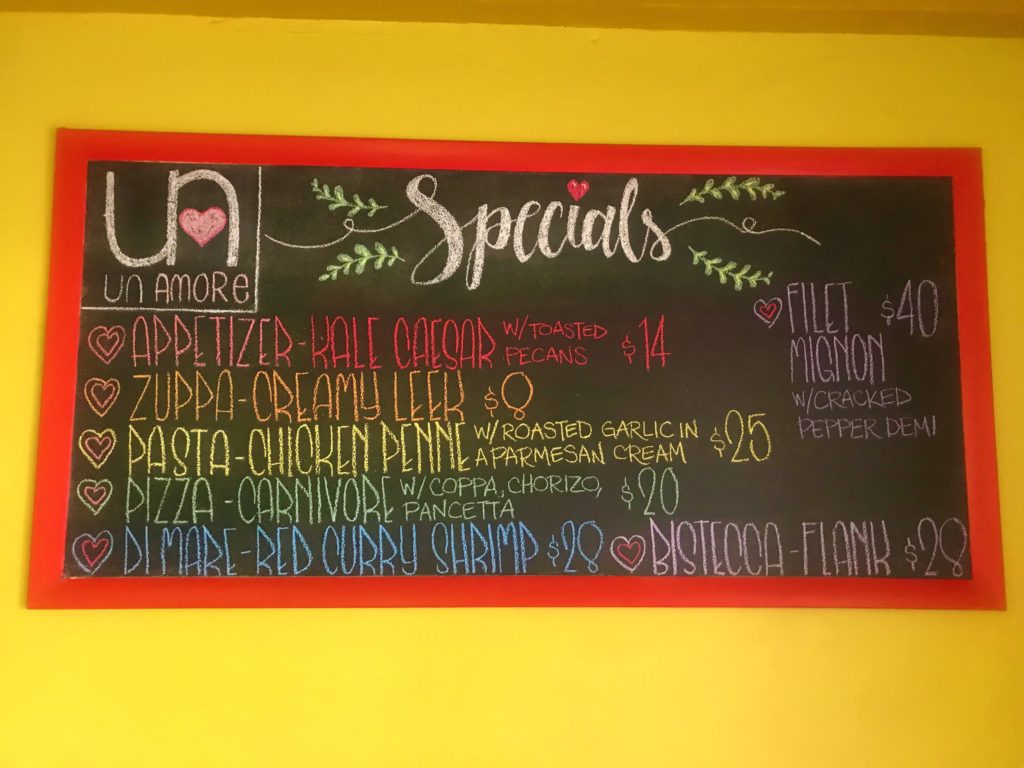 un
un AMORE
Specials
APPETIZER - KALE CAESAR W/TOASTED PECANS $14
ZUPPA - CREAMY LEEK $8
PASTA - CHICKEN PENNE W/ROASTED GARLIC IN A PARMESAN CREAM $25
PIZZA - CARNIVORE W/COPPA, CHORIZO, PANCETTA $20
DI MARE - RED CURRY SHRIMP $28
FILET MIGNON $40
W/CRACKED
PEPPER DEMI
BISTECCA - FLANK $28